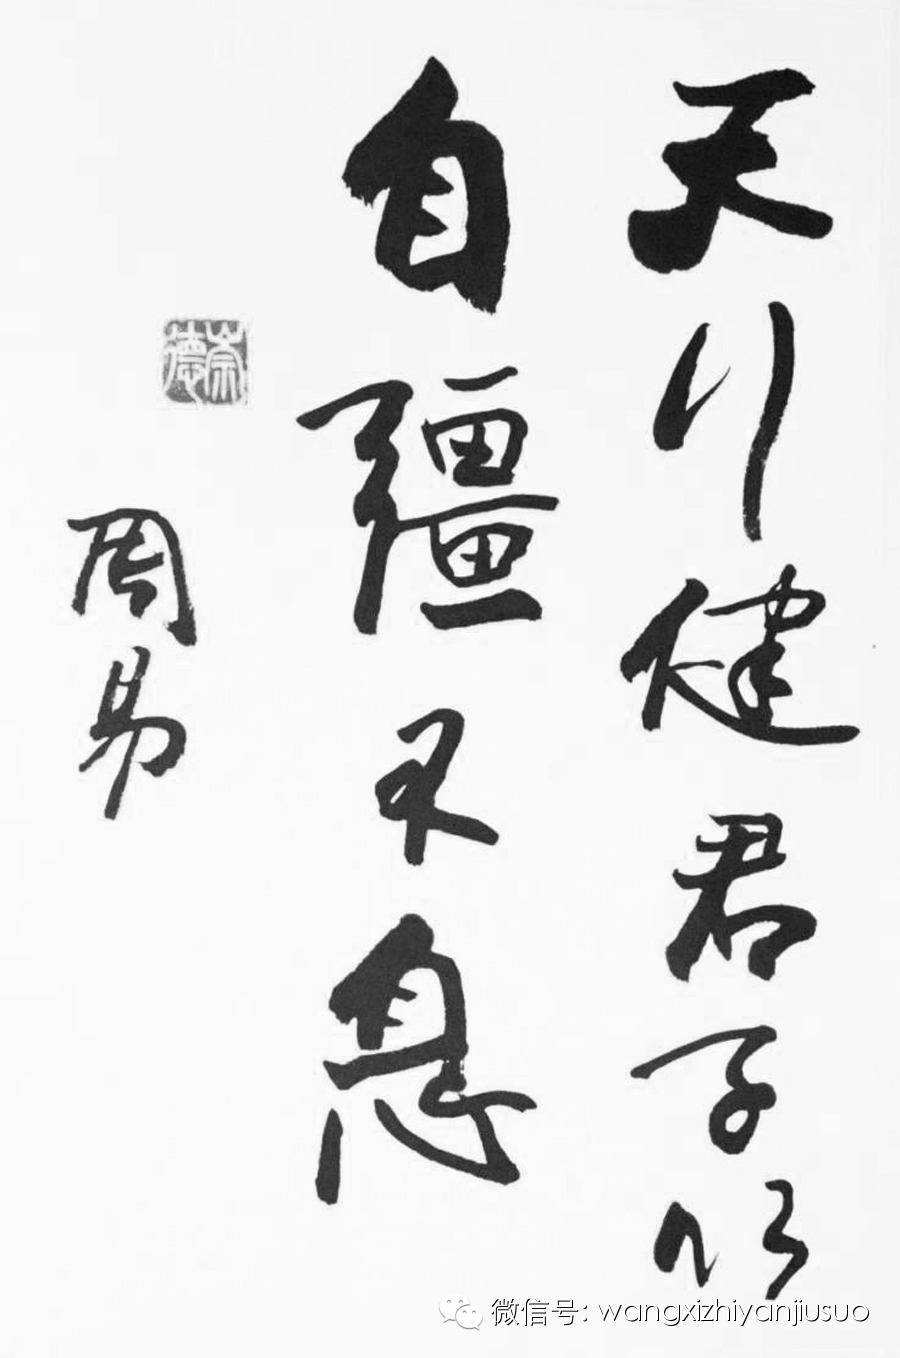 天行健君子以
自疆不息
周易
崇德
微信号: wangxizhiyanjiusuo